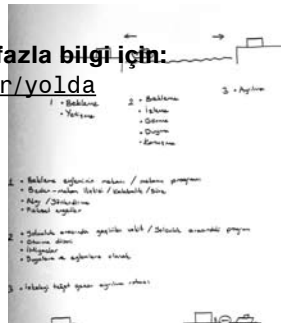 fazla bilgi için:
r/yolda
1 • Bekleme
• Yetişme
2 • Bekleme
• İzleme
• Görme
• Duyma
• Konuşma
3 • Ayrılma
1 • Bekleme eyleminin mekanı / mekanı programı
• Beden-mekan ilişkisi / Kalabalık / Süre
• Akış / Yönlendirme
• Fiziksel engeller
2 • Yolculuk sırasında geçirilen vakit / Yolculuk sırasındaki program
• Oturma düzeni
• İhtiyaçlar
• Duyulara ve eylemlere olanak
3 • İskeleyi teğet geçen ayrılma rotası